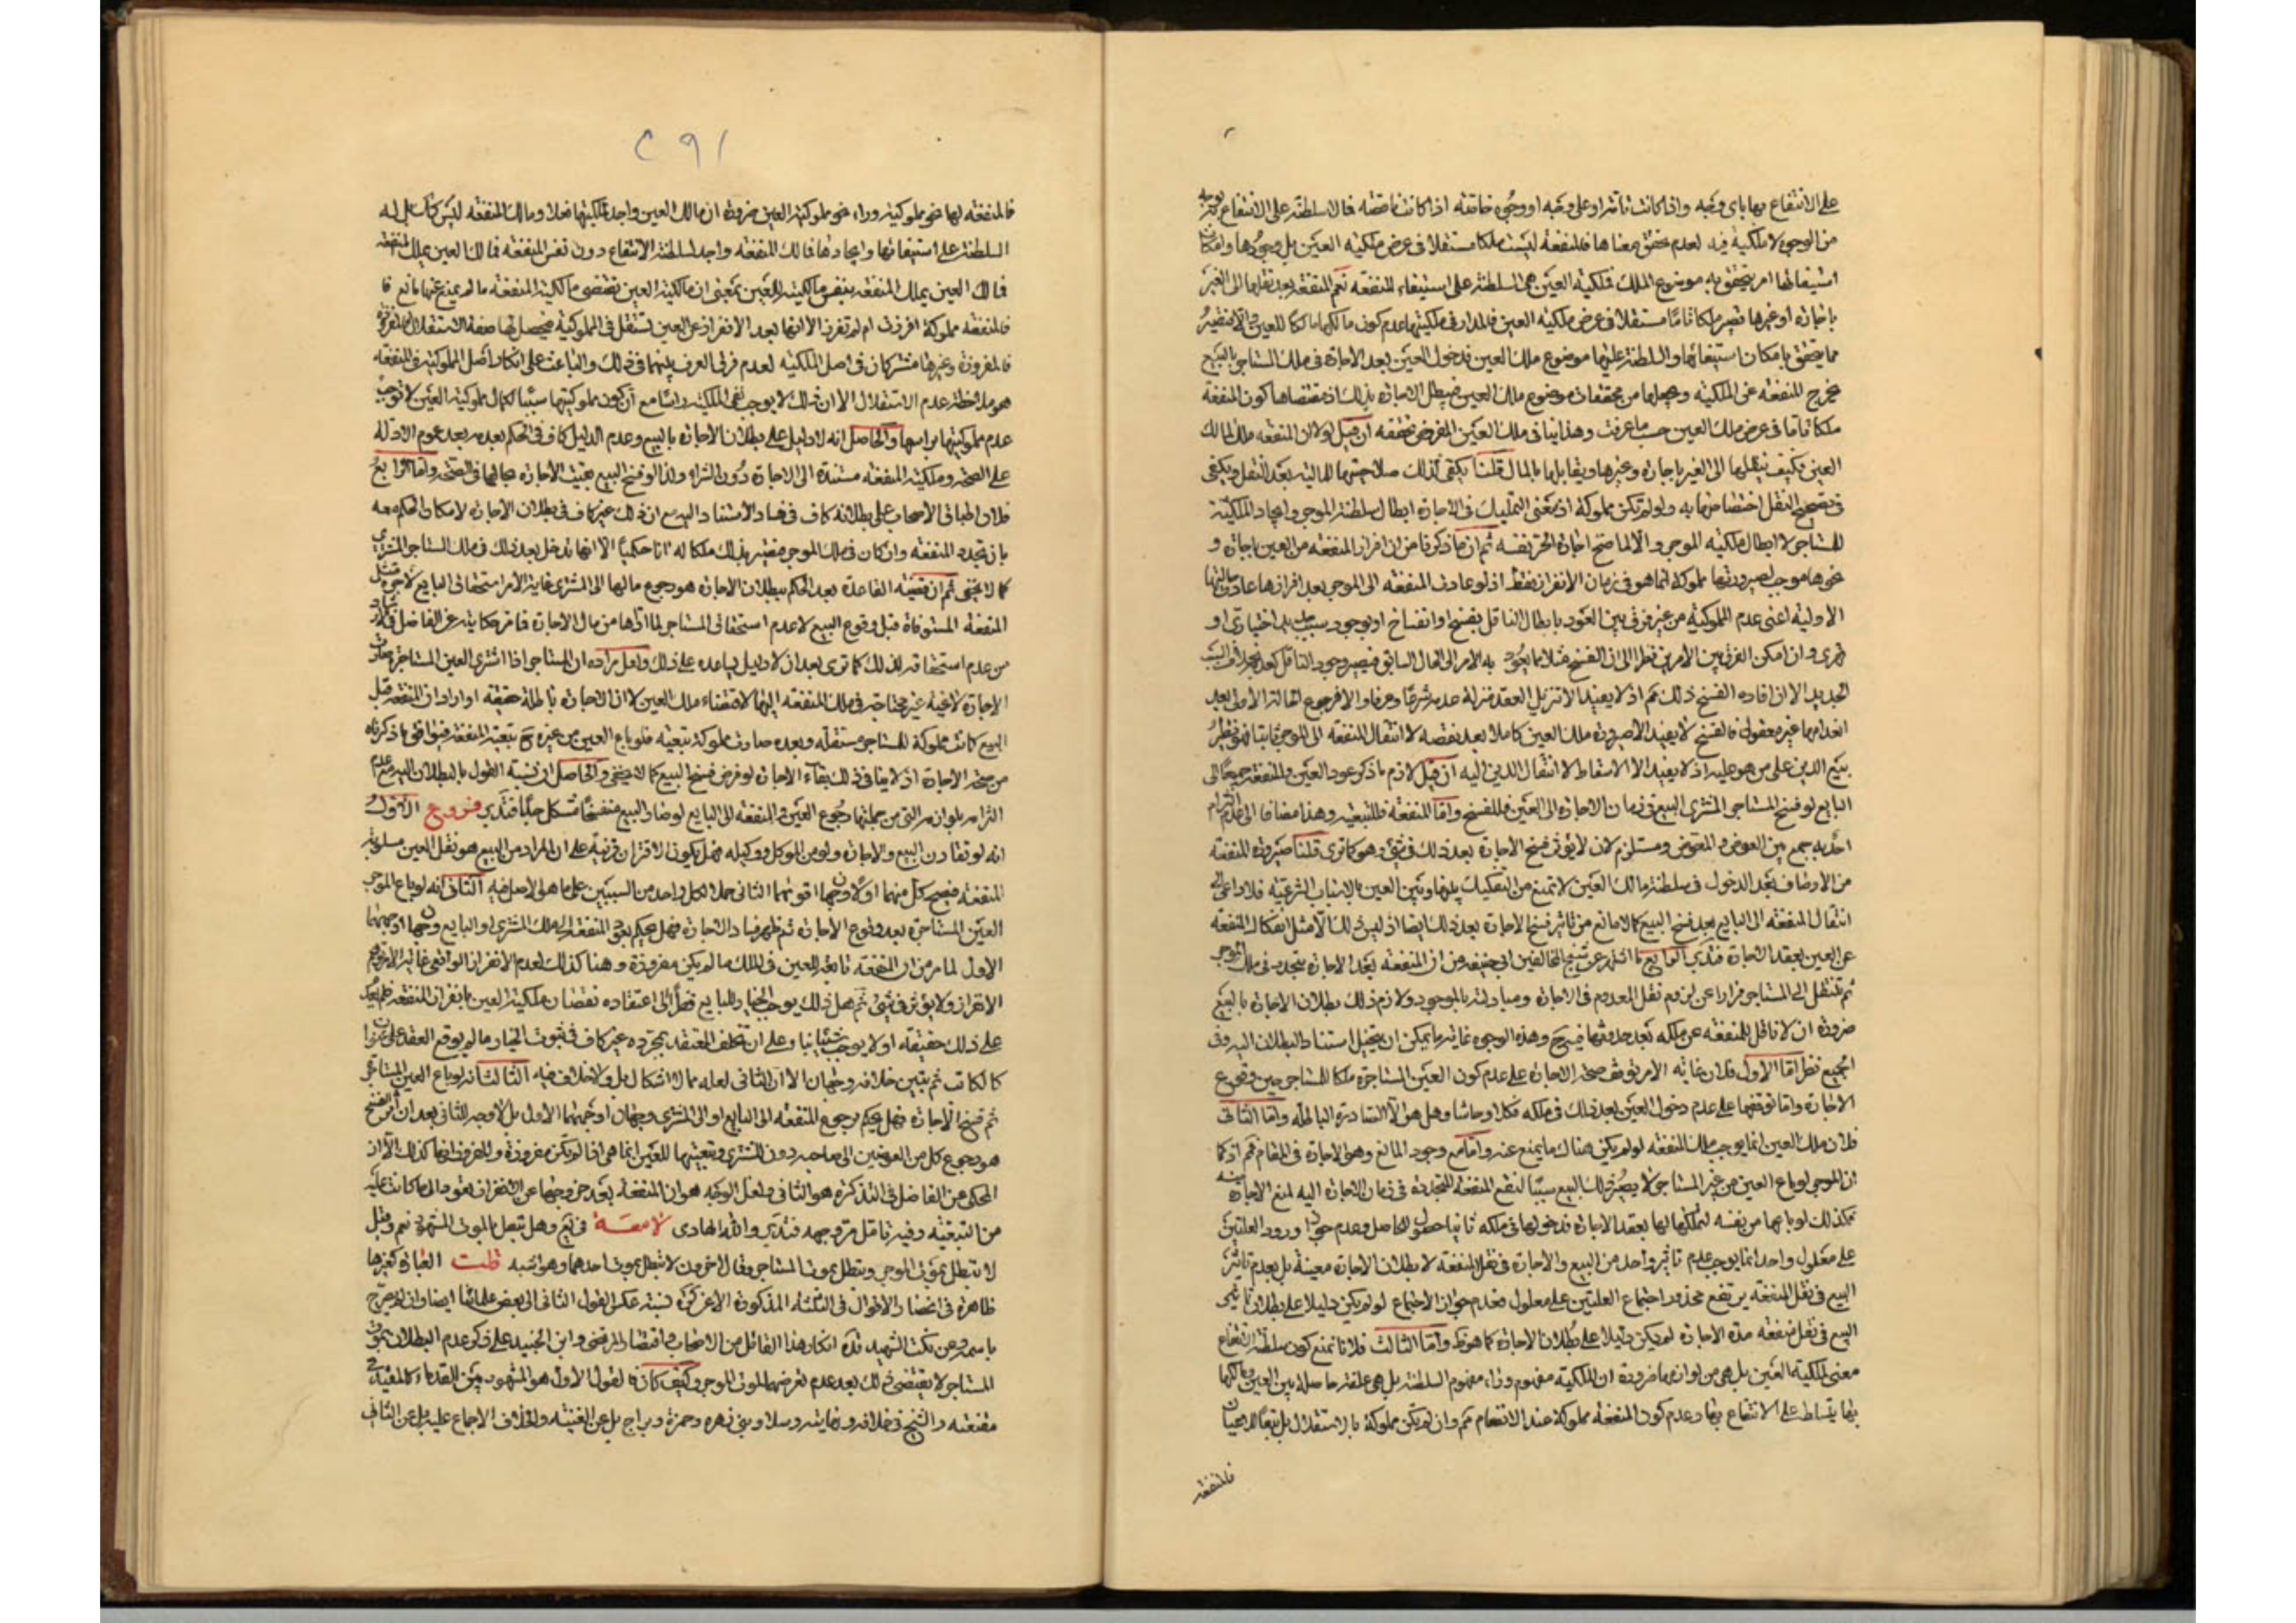 على الانتفاع بها باى وجه واذا كانت تامة او على وجه او وجوه خاصة اذا كانت ناقصة فالسلطنة على الانتفاع بوجه
من الوجوه لا ملكية فيه لعدم تحقق معناها فالمنفعة ليست ملكا مستقلا فى عرض ملكية العين بل وجودها وامكان
استيفائها امر يتحقق به موضوع الملك فملكية العين هى السلطنة على استيفاء المنفعة نعم المنفعة بعد نقلها الى الغير
باجارة او غيرها تصير ملكا تاما مستقلا فى عرض ملكية العين فالمدار فى ملكيتها عدم كون مالكها مالكا للعين
مما يتحقق بامكان استيفائها والسلطنة عليها موضوع ملك العين فدخول العين بعد الاجارة فى ملك المستاجر بالبيع
يخرج المنفعة عن الملكية ويجعلها من محققات موضوع ملك العين فيبطل الاجارة بذلك اذ مقتضاها كون المنفعة
ملكا تاما فى عرض ملك العين حسب ما عرفت وهذا ينافى ملك العين المفروض تحققه ان قيل لولا ان المنفعة ملك لمالك
العين فكيف ينقلها الى الغير باجارة وغيرها ويقابلها بالمال قلنا يكفى كذلك صلاحيتها للمالية بعد النقل ويكفى
فى تصحيح النقل اختصاصها به ولو لم تكن مملوكة اذ معنى التمليك فى الاجارة ابطال سلطنة الموجر وايجاد الملكية
للمستاجر لا ابطال ملكية الموجر والا لما صح اجارة الحر نفسه ثم ان ما ذكرنا من ان افراز المنفعة من العين باجارة و
نحوها موجب لصيرورتها مملوكة انما هو فى زمان الانفراز فقط اذ لو عادت المنفعة الى الموجر بعد افرازها عادت حالتها
الاولية اعنى عدم المملوكية من غير فرق بين العود بابطال الناقل بفسخ وانفساخ او بوجود سبب مملك اختيارى او
قهرى وان امكن الفرق بين الامرين نظرا الى ان الفسخ مثلا مما يعود به الامر الى الحال السابق فيصير وجود الناقل كعدمه بخلاف السبب
الجديد الا ان افادة الفسخ ذلك مم اذ لا يفيد الا تنزيل العقد منزلة عدمه شرعا وعرفا والا فرجوع الحالة الاولى بعد
انعدامها غير معقول فالفسخ لا يفيد الا صيرورة ملك العين كاملا بعد نقصه لا انتقال المنفعة الى الموجر ثانيا فهو نظير
بيع الدين على من هو عليه اذ لا يفيد الا الاسقاط لا انتقال الدين اليه ان قيل لازم ما ذكر عود العين والمنفعة جميعا الى
البايع لو فسخ المستاجر المشترى البيع فى زمان الاجارة اما العين فللفسخ واما المنفعة فللتبعية وهذا مضافا الى عدم التزام
احد به جمع بين العوض والمعوض ومستلزم لان لا يؤثر فسخ الاجارة بعد ذلك فى شئ وهو كما ترى قلنا صيرورة المنفعة
من الاوصاف بعد الدخول فى سلطنة مالك العين لا تمنع من التفكيك بينها وبين العين بالاسباب الشرعية فلا داعى الى
انتقال المنفعة الى البايع بعد فسخ البيع كما لا مانع من تاثير فسخ الاجارة بعد ذلك ايضا اذ ليس ذلك الا مثل انفكاك المنفعة
عن العين بعقد الاجارة فتدبر الرابع ما اشتهر عن شيخ المخالفين ابى حنيفة من ان المنفعة بعد الاجارة تتجدد فى ملك الموجر
ثم تنتقل الى المستاجر فرارا عن لزوم نقل المعدوم فى الاجارة ومبادلته بالموجود ولازم ذلك بطلان الاجارة بالبيع
ضرورة ان لا ناقل للمنفعة عن ملكه بعد حدوثها فيه ح وهذه الوجوه غاية ما يمكن ان يتخيل استناد البطلان اليه وفى
الجميع نظر اما الاول فلان غاية الامر توقف صحة الاجارة على عدم كون العين المستاجرة ملكا للمستاجر حين وقوع
الاجارة واما توقفها على عدم دخول العين بعد ذلك فى ملكه فكلا وحاشا وهل هو الا المصادرة الباطلة واما الثانى
فلان ملك العين انما يوجب ملك المنفعة لو لم يكن هناك ما يمنع عنه واما مع وجود المانع وهو الاجارة فى المقام فمم اذ كما
ان الموجر لو باع العين من غير المستاجر لا يصير ذلك البيع سببا لنقل المنفعة المتجددة فى زمان الاجارة اليه لمنع الاجارة منه
فكذلك لو باعها من نفسه لتملكها لها بعقد الاجارة فدخولها فى ملكه ثانيا تحصيل للحاصل وعدم جواز ورود العلتين
على معلول واحد انما يوجب عدم تاثير واحد من البيع والاجارة فى نقل المنفعة لا بطلان الاجارة معينة بل بعدم تاثير
البيع فى نقل المنفعة يرتفع محذور اجتماع العلتين على معلول فعدم جواز الاجتماع لو لم يكن دليلا على بطلان تاثير
البيع فى نقل منفعة مدة الاجارة لم يكن دليلا على بطلان الاجارة كما هو ظ واما الثالث فلانا نمنع كون سلطنة الانتفاع
معنى لملكية العين بل هى من لوازمها ضرورة ان الملكية مفهوم وراء مفهوم السلطنة بل هى علقة حاصلة بين العين ومالكها
بها يتسلط على الانتفاع بها وعدم كون المنفعة مملوكة عند الانضمام مم وان لم تكن مملوكة بالاستقلال بل تبعا للاعيان
فالمنفعة
٢٩١
فالمنفعة لها نحو مملوكية وراء نحو مملوكية العين ضرورة ان مالك العين واجد لملكيتها فعلا ومالك المنفعة ليس كذلك بل له
السلطنة على استيفائها وايجادها فمالك المنفعة واجد لسلطنة الانتفاع دون نفس المنفعة فمالك العين يملك المنفعة
فمالك العين يملك المنفعة بنفس مالكية العين بمعنى ان مالكية العين يقتضى مالكية المنفعة ما لم يمنع عنها مانع فا
فالمنفعة مملوكة افرزت ام لم تفرز الا انها بعد الانفراز عن العين تستقل فى المملوكية فيحصل لها صفة الاستقلال
فالمفروزة وغيرها مشتركان فى اصل الملكية لعدم فرق العرف بينهما فى ذلك والباعث على انكار اصل المملوكية فى المنفعة
هو ملاحظة عدم الاستقلال الا ان ذلك لا يوجب نفى الملكية راسا مع ان كون مملوكيتها سببا لكمال مملوكية العين لا توجب
عدم مملوكيتها براسها والحاصل انه لا دليل على بطلان الاجارة بالبيع وعدم الدليل كاف فى الحكم بعدمه بعد عموم الادلة
على الصحة وملكية المنفعة مستندة الى الاجارة دون الشراء ولذا لو فسخ البيع بقيت الاجارة بحالها فى الصحة واما الرابع
فلان اطباق الاصحاب على بطلانه كاف فى فساد الاستناد اليه مع ان ذلك غير كاف فى بطلان الاجارة لامكان الحكم معه
بان تجدد المنفعة وان كان فى ملك الموجر فتصير بذلك ملكا له انا حكميا الا انها تدخل بعد ذلك فى ملك المستاجر المشترى
كما لا يخفى ثم ان قضية القاعدة بعد الحكم ببطلان الاجارة هو رجوع مالها الى المشترى غاية الامر استحقاق البايع لاجرة مثل
المنفعة المستوفاة قبل وقوع البيع لا عدم استحقاق المستاجر لما اداها من مال الاجارة فما مر حكايته عن الفاضل فى الارشاد
من عدم استحقاقه لذلك كما ترى بعد ان لا دليل يساعده على ذلك ولعل مراده ان المستاجر اذا اشترى العين المستاجرة صارت
الاجارة لاغية غير محتاجة فى ملك المنفعة اليها لاقتضاء ملك العين لا ان الاجارة باطلة حقيقة او اراد ان المنفعة قبل
البيع كانت مملوكة للمستاجر مستقلة وبعده صارت مملوكة بتبعيته فلو باع العين من غيره ح تبعته المنفعة فيوافق ما ذكرناه
من صحة الاجارة اذ لا ينافى ذلك بقاء الاجارة لو فرض فسخ البيع كما لا يخفى والحاصل ان نسبة القول بالبطلان اليه مع عدم
التزامه بلوازمه التى من جملتها رجوع العين والمنفعة الى البايع لو صار البيع منفسخا مشكل جدا فتدبر فروع الاول
انه لو تقارن البيع والاجارة ولو من الموكل ووكيله فهل يكون الاقتران قرينة على ان المراد من البيع هو نقل العين مسلوبة
المنفعة فيصح كل منهما اولا وجهان اقويهما الثانى حملا لكل واحد من السببين على ما هو الاصل فيه الثانى انه لو باع الموجر
العين المستاجرة بعد وقوع الاجارة ثم ظهر فساد الاجارة فهل يحكم بعود المنفعة الى ملك المشترى او البايع وجهان اوجههما
الاول لما مر من ان المنفعة تابعة للعين فى الملك ما لم يكن مفروزة وهنا كذلك لعدم الانفراز الواقعى غاية الامر توهم
الافراز ولا يؤثر فى شئ ثم هل ذلك يوجب الخيار للبايع نظرا الى اعتقاده نقصان ملكية العين بانفراز المنفعة فلم يقدم
على ذلك حقيقة او لا يوجب شيئا بناء على ان تخلف المعتقد بمجرده غير كاف فى ثبوت الخيار ما لم يوقع العقد على عنوان
كالكاتب ثم يتبين خلافه وجهان الا ان الثانى لعله مما لا اشكال بل ولا خلاف فيه الثالث انه لو باع العين المستاجرة
ثم فسخ الاجارة فهل يحكم برجوع المنفعة الى البايع او الى المشترى وجهان اوجههما الاول بل لا وجه للثانى بعد ان اثر الفسخ
هو رجوع كل من العوضين الى صاحبه دون المشترى وتبعيتها للعين انما هى اذا لم تكن مفروزة والمفروض انها كذلك الا ان
المحكى عن الفاضل فى التذكرة هو الثانى ولعل الوجه هو ان المنفعة بعد خروجها عن الانفراز تعود الى ما كانت عليه
من التبعية وفيه تامل مر وجهه فتدبر والله الهادى لامعة فى يع وهل تبطل بالموت المشهور نعم وقيل
لا تبطل بموت الموجر وتبطل بموت المستاجر وقال الاخرون لا تبطل بموت احدهما وهو اشبه قلت العبارة كغيرها
ظاهرة فى انحصار الاقوال فى الثلثة المذكورة الا عن كرة نسبة عكس القول الثانى الى بعض علمائنا ايضا وان لم يصرح
باسمه وعن نكت الشهيد ره انكار هذا القائل من الاصحاب واقتصار المرتضى وابن الجنيد على ذكر عدم البطلان بموت
المستاجر لا يقتضى ذلك بعد عدم تعرضهما لموت الموجر وكيف كان فالقول الاول هو المشهور بين القدماء كالمفيد فى
مقنعته والشيخ فى خلافه ونهايته وسلار وبنى زهره وحمزة وبراج بل عن الغنية والخلاف الاجماع عليه بل عن الثانى